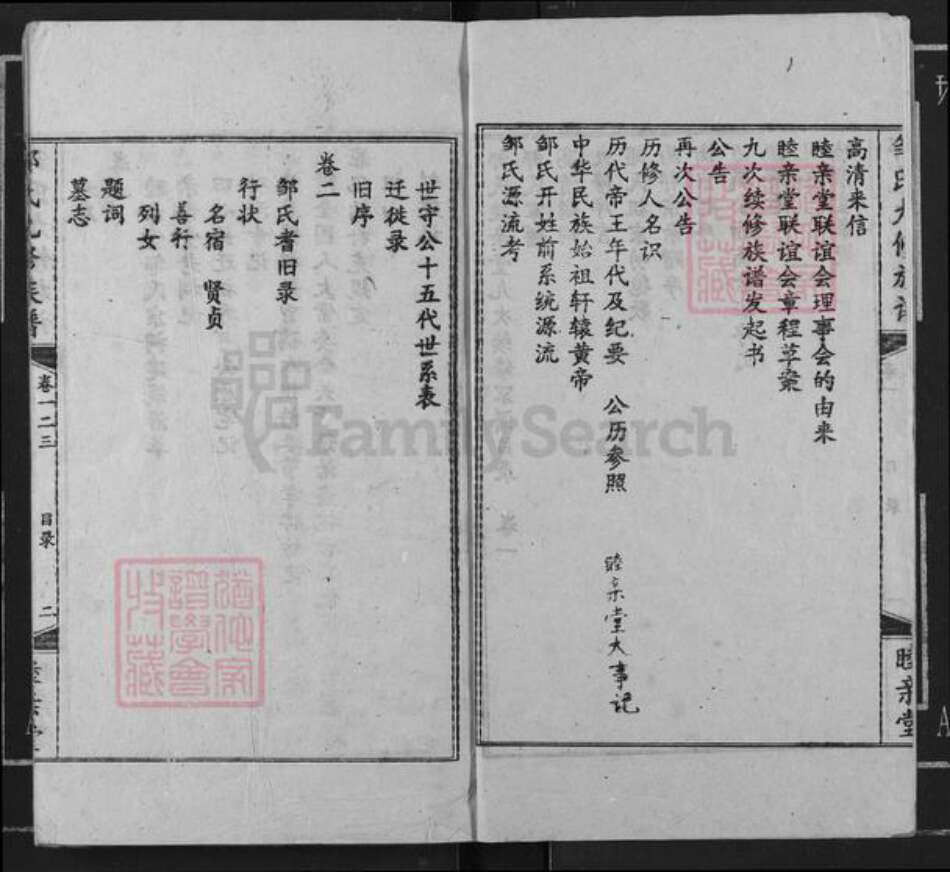 邹氏九修族谱
睦亲堂
高清来信
睦亲堂联谊会理事会的由来
睦亲堂联谊会章程草案
九次续修族谱发起书
公告
再次公告
历修人名识
历代帝王年代及纪要 公历参照 睦亲堂大事记
中华民族始祖轩辕黄帝
邹氏开姓前系统源流
邹氏源流考
世守公十五代世系表
迁徙录
旧序
卷二
邹氏耆旧录
行状
名宿 贤贞
善行
列女
题词
墓志
邹氏九修族谱
卷一二三
目录
二
睦亲堂
FamilySearch